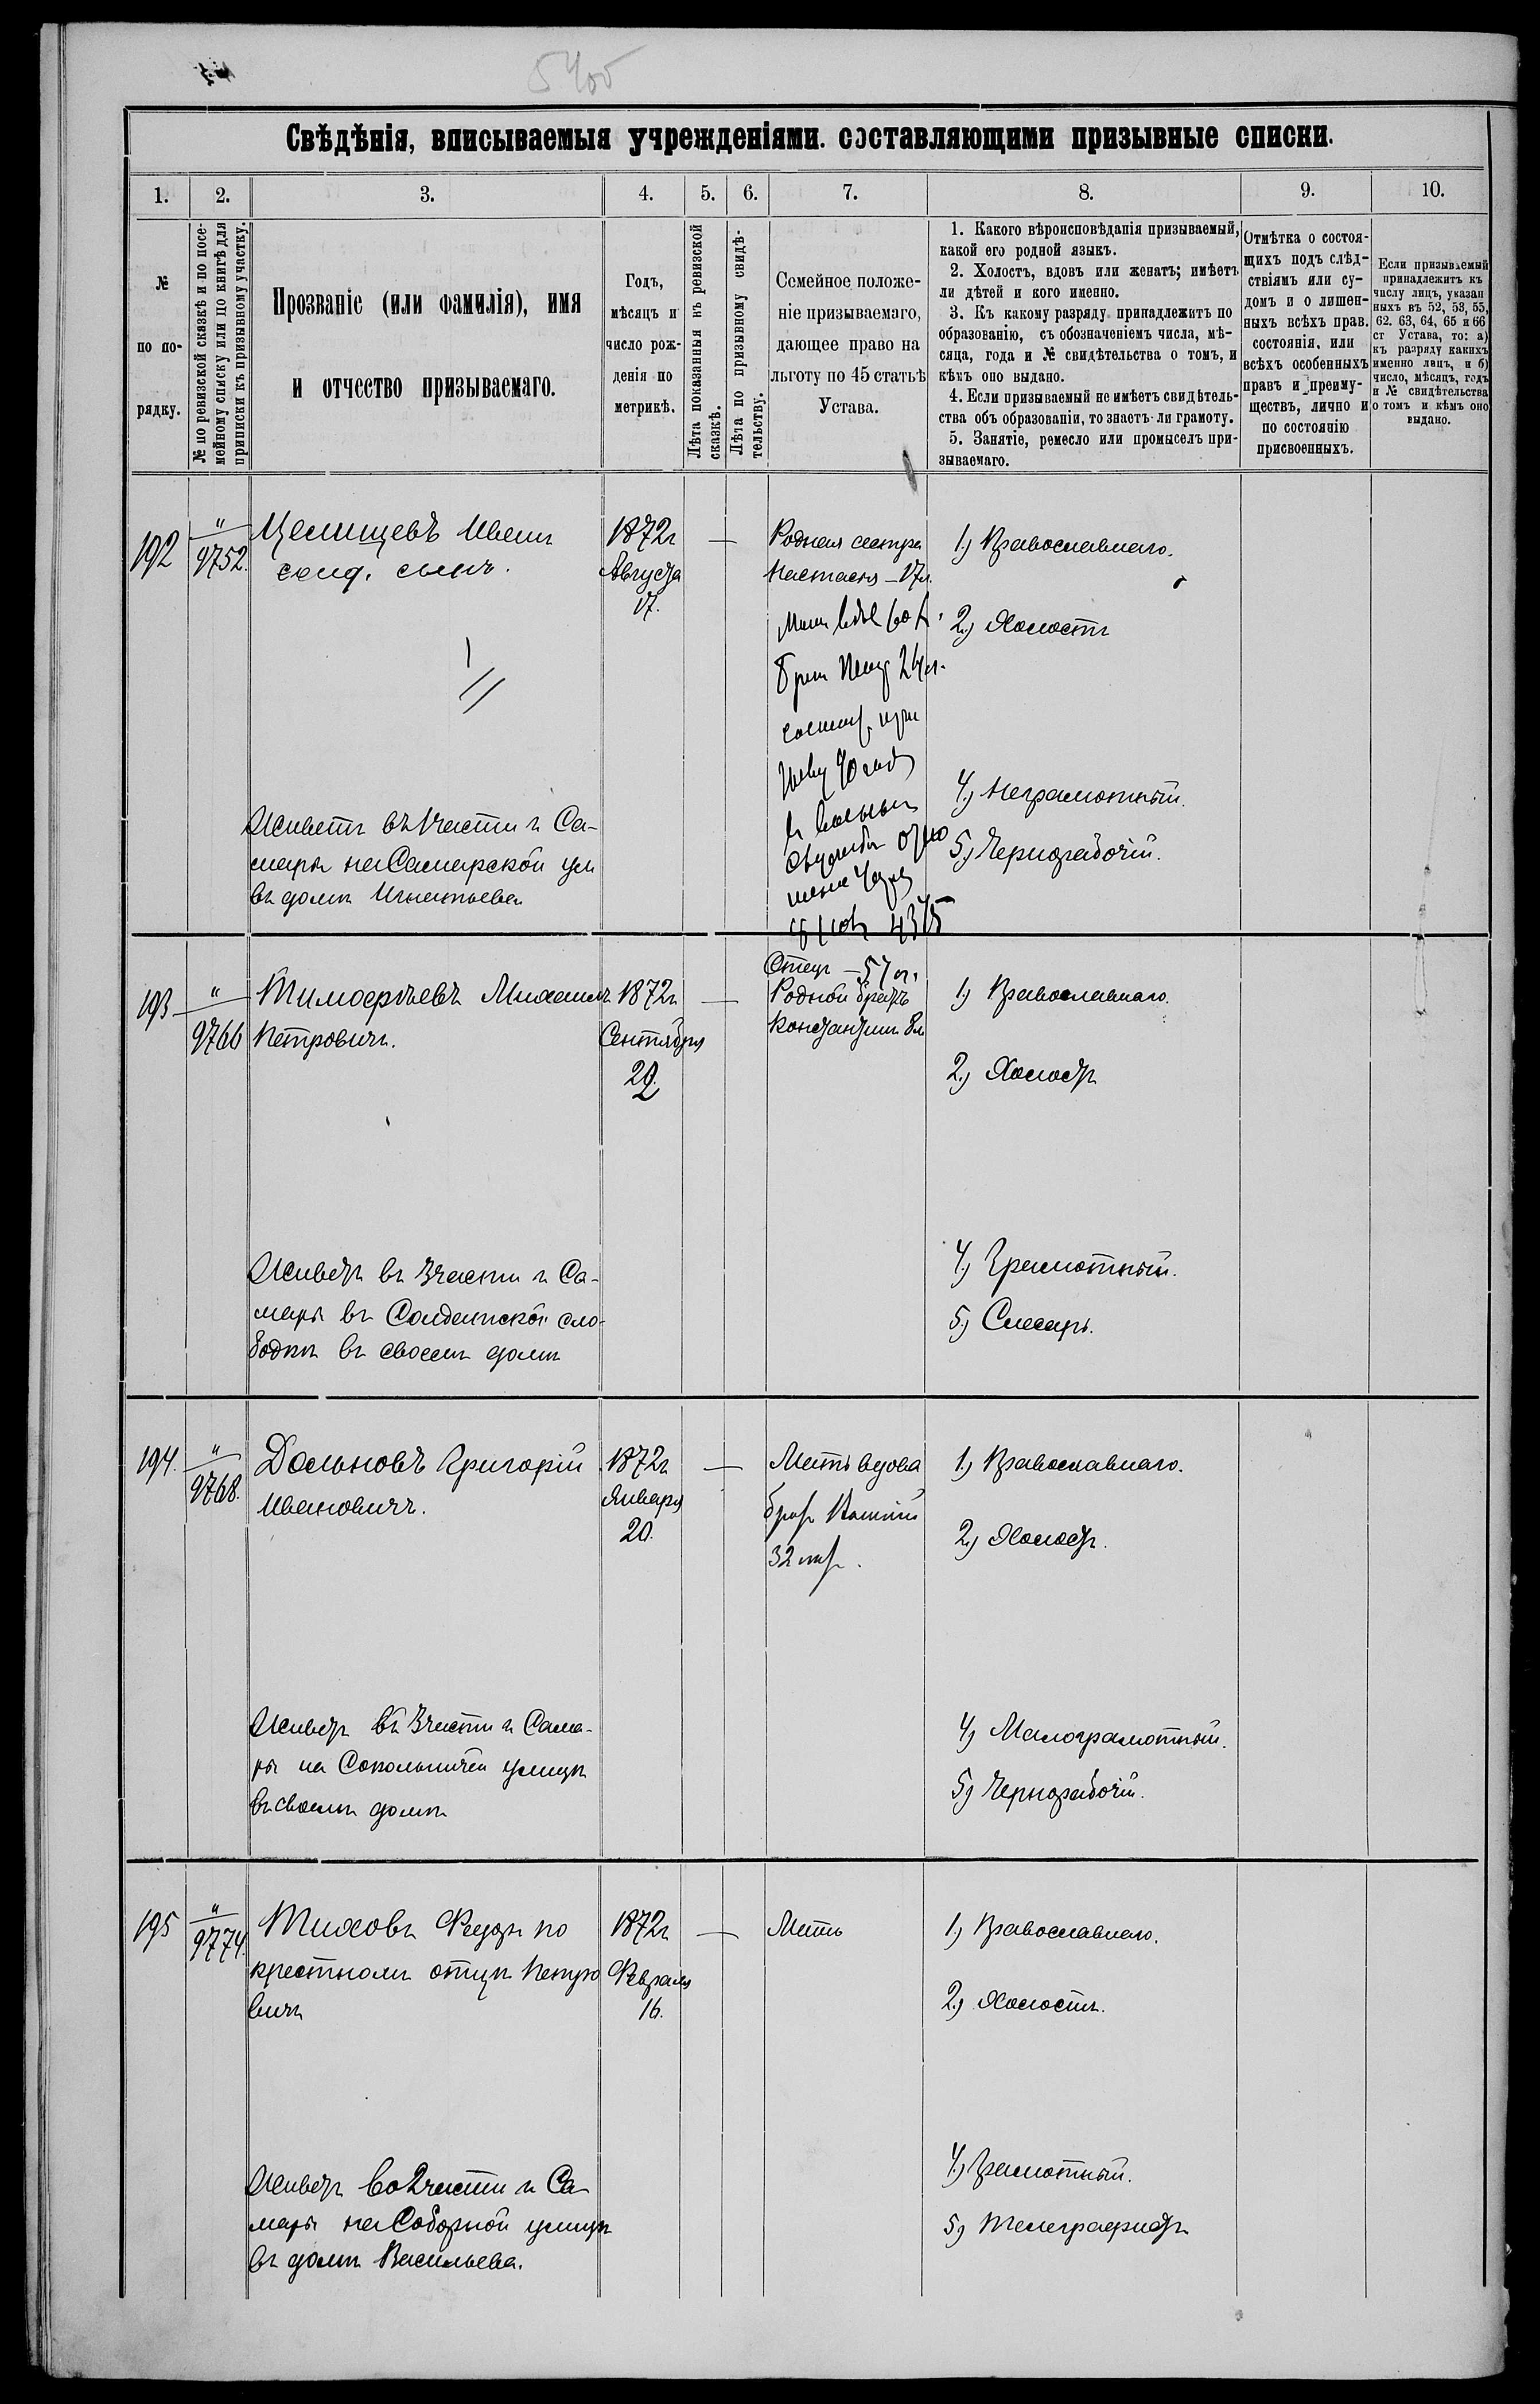 5400
Свѣдѣнія, вписываемыя учрежденіями. составляющими призывные списки.
1.
2.
3.
4.
5.
6.
7.
8.
9.
10.
№
по по-
рядку.
№ по ревизской сказкѣ и по посе-
мейному списку или по книгѣ для
приписки къ призывному участку.
Прозваніе (или фамилія), имя
и отчество призываемаго.
Годъ,
мѣсяцъ и
число рож-
денія по
метрикѣ.
Лѣта показанныя къ ревизской
сказкѣ.
Лѣта по призывному свидѣ-
тельству.
Семейное положе-
ніе призываемаго,
дающее право на
льготу по 45 статьѣ
Устава.
1. Какого вѣроисповѣданія призываемый,
какой его родной языкъ.
2. Холостъ, вдовъ или женатъ; имѣетъ
ли дѣтей и кого именно.
3. Къ какому разряду принадлежитъ по
образованію, съ обозначеніемъ числа, мѣ-
сяца, года и № свидѣтельства о томъ, и
кѣмъ оно выдано.
4. Если призываемый не имѣетъ свидѣтель-
ства объ образованіи, то знаетъ-ли грамоту.
5. Занятіе, ремесло или промыселъ при-
зываемаго.
Отмѣтка о состоя-
щихъ подъ слѣд-
ствіямъ или су-
домъ и о лишен-
ныхъ всѣхъ прав.
состоянія, или
всѣхъ особенныхъ
правъ и преиму-
ществъ, лично и
по состоянію
присвоенныхъ.
Если призываемый
принадлежитъ къ
числу лицъ, указан
ныхъ въ 52, 53, 55,
62. 63, 64, 65 и 66
ст Устава, то: а)
къ разряду какихъ
именно лицъ, и б)
число, мѣсяцъ, годъ
и № свидѣтельства
о томъ и кѣмъ оно
выдано.
192
"
9752.
Целищевъ Иванъ
солд. сынъ.
1872г
Августа
17.
—
Родная сестра
Настасья — 17л.
1.) Православнаго.
2.) Холостъ
4.) Неграмотный.
5.) Чернорабочій.
Живетъ въ 1 части г Са-
мары на Самарской ул
въ домѣ Игнатьева
4375
193
"
9766
Тимофѣевъ Михаилъ
Петровичъ.
1872г
Сентября
29.
—
Отецъ — 57 л.
Родной братъ
Константинъ 8л
1.) Православнаго.
2.) Холостъ
4.) Грамотный.
5.) Слесарь.
Живетъ въ 3 части г Са-
мары въ Солдатской сло-
бодкѣ въ своемъ домѣ
194.
"
9768.
Дольновъ Григорій
Ивановичъ.
1872г
Января
20.
—
Мать вдова
братъ
32 лѣт.
1.) Православнаго.
2.) Холостъ.
4.) Малограмотный.
5.) Чернорабочій.
Живетъ въ 3 части г Сама-
ры на Сокольничей улицѣ
въ своемъ домѣ
195
"
9774.
Тиховъ Федоръ по
крестному отцу Петро
вичъ
1872г
Февраля
16.
—
Мать
1.) Православнаго.
2.) Холостъ.
4.) Грамотный.
5.) Телеграфистъ
Живетъ во 2 части г Са-
мары на Соборной улицѣ
въ домѣ Васильева.